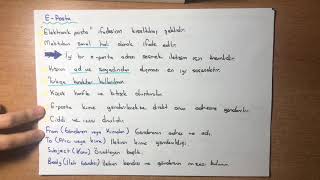 E-Posta
Elektronik posta" ifadesinin kısaltılmış şeklidir.
Mektubun sanal hali olarak ifade edilir.
İyi bir e-posta adresi seçmek iletişim için önemlidir.
Kişinin ad ve soyadından oluşması en iyi seçenektir.
Türkçe karakter kullanılmaz
Küçük harfle ve bitişik olmalıdır.
E-posta kime gönderilecekse direkt onun adresine gönderilir.
Ciddi ve olmalıdır.
From (Gönderen veya Kimden) Gönderenin adresi ve adı.
To (Alıcı veya kime) İletinin kime gönderildiği.
Subject (Konu) Özetleyen başlık.
Body (İleti Gövdesi) İletinin kendisi ve gönderenin imzası bulunur.